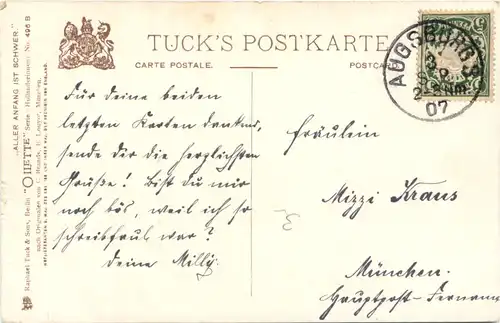 TUCK'S POSTKARTE
CARTE POSTALE.
POSTCAR
"ALLER ANFANG IST SCHWER."
"OILETTE" Serie No. 496 B
Raphael Tuck & Sons, Berlin
nach Originalen von C. München.
AUGSBURG
07
5
Für deine beiden
letzten Karten dankend,
sende dir die herzlichsten
Grüße! Bist du mir
noch bös, weil ich so
schreibfaul war?
deine Milly.
Fräulein
Mizzi Kraus
München.
Hauptpost-